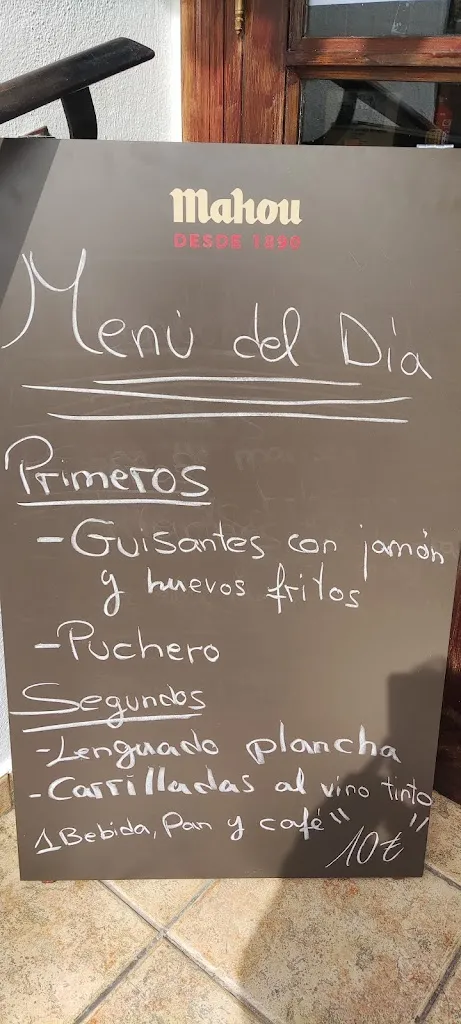 Mahou
DESDE 1890
Menú del Día
Primeros
- Guisantes con jamón
y huevos fritos
- Puchero
Segundos
- Lenguado plancha
- Carrilladas al vino tinto
1 Bebida, Pan y café " "
10€